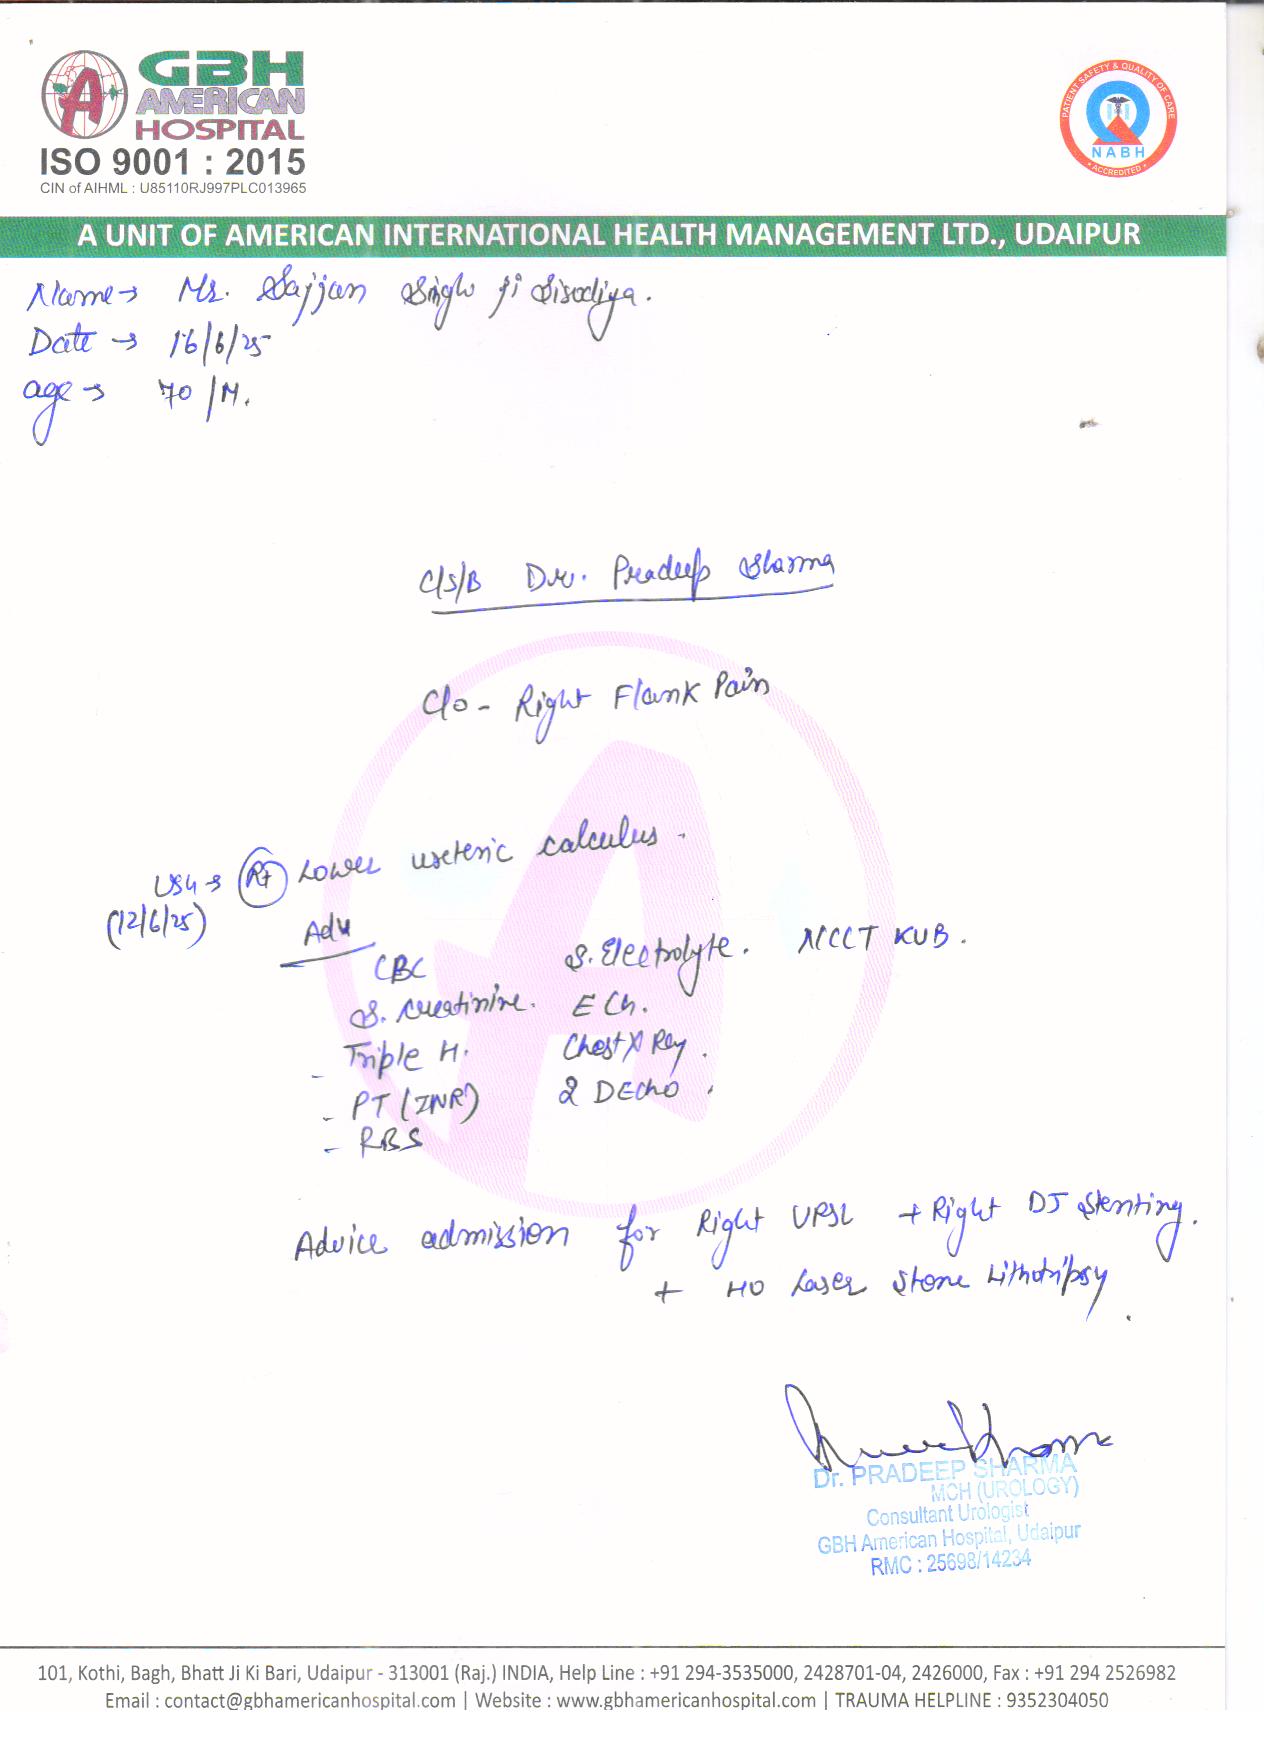 GBH
AMERICAN
HOSPITAL
ISO 9001 : 2015
CIN of AIHML : U85110RJ997PLC013965
PATIENT SAFETY & QUALITY OF CARE
NABH
• ACCREDITED •
A UNIT OF AMERICAN INTERNATIONAL HEALTH MANAGEMENT LTD., UDAIPUR
Name → Mr. Sajjan Singh Ji Sisodiya.
Date → 16/6/25
age → 70/M.
C/S/B Dr. Pradeep Sharma
C/o - Right Flank Pain
USG → Rt Lower ureteric calculus.
(12/6/25)
Adv
CBC S. Electrolyte. NCCT KUB.
S. creatinine. ECG.
- Triple H. Chest X Ray.
- PT (INR) 2 DEcho.
- RBS
Advice admission for Right URSL + Right DJ Stenting.
+ HO Laser Stone Lithotripsy.
Dr. PRADEEP SHARMA
MCH (UROLOGY)
Consultant Urologist
GBH American Hospital, Udaipur
RMC : 25698/14234
101, Kothi, Bagh, Bhatt Ji Ki Bari, Udaipur - 313001 (Raj.) INDIA, Help Line : +91 294-3535000, 2428701-04, 2426000, Fax : +91 294 2526982
Email : contact@gbhamericanhospital.com | Website : www.gbhamericanhospital.com | TRAUMA HELPLINE : 9352304050